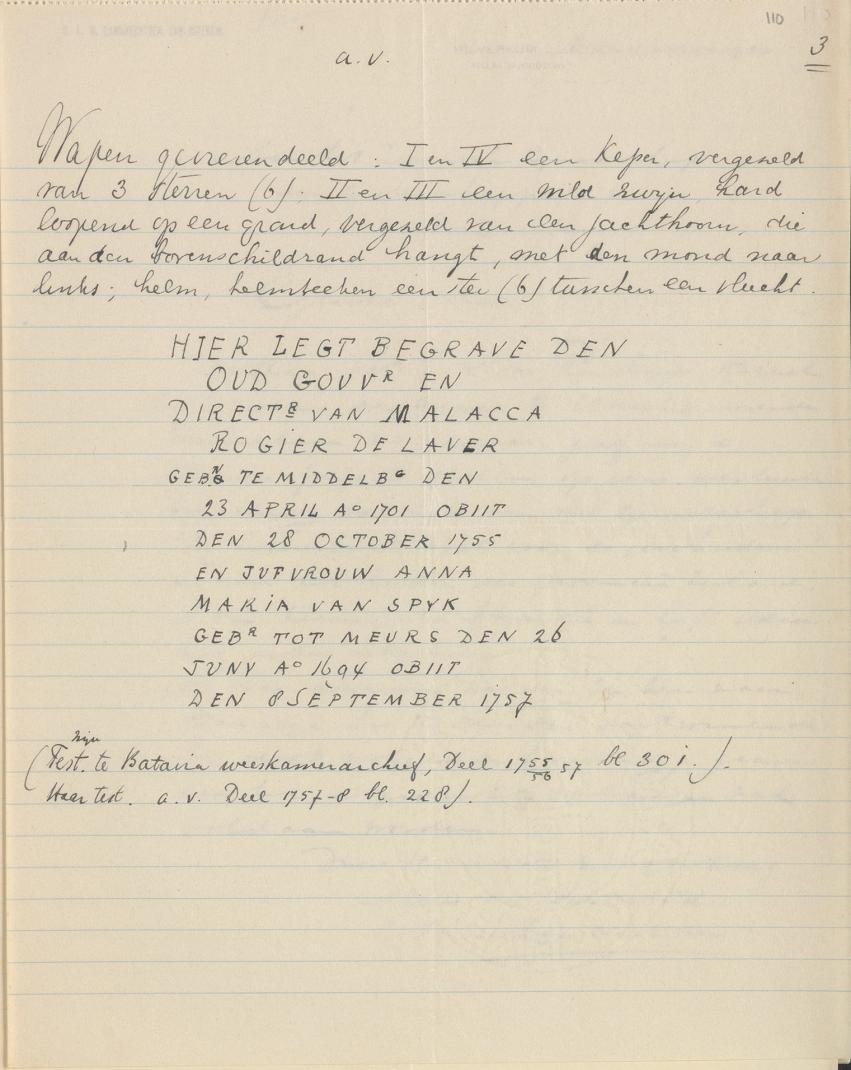 110
3
a.v.
Wapen gevierendeeld : I en IV een Keper, vergezeld
van 3 sterren (6). II en III een wild zwijn, hard
loopend op een grond, vergezeld van een jachthoorn, die
aan den bovenschildrand hangt, met den mond naar
links; helm, helmteeken een ster (6) tusschen een vlucht.
HIER LEGT BEGRAVE DEN
OUD GOUVR EN
DIRECTR VAN MALACCA
ROGIER DE LAVER
TE MIDDELBG DEN
23 APRIL Ao 1701 OBIIT
DEN 28 OCTOBER 1755
EN JUFVROUW ANNA
MARIA VAN SPYK
GEBR TOT MEURS DEN 26
JUNY Ao 1694 OBIIT
DEN 8 SEPTEMBER 1757
zijn
(Test. te Batavia weeskamerarchief, Deel 1755/56 57 bl 301.).
Haar test. a.v. Deel 1757-8 bl. 228).